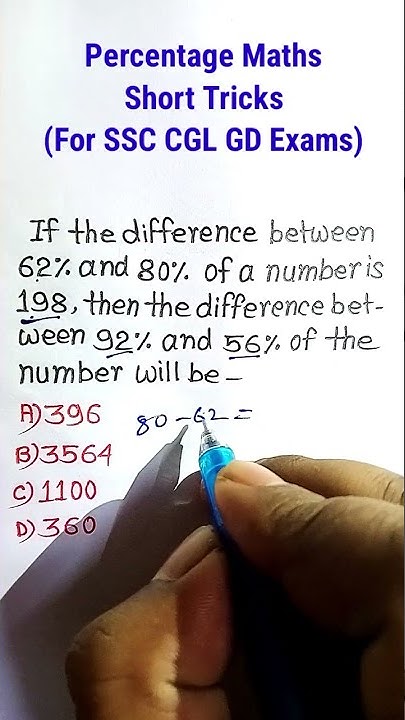 Percentage Maths
Short Tricks
(For SSC CGL GD Exams)
If the difference between
62% and 80% of a number is
198, then the difference bet-
ween 92% and 56% of the
number will be -
A) 396
80 - 62 =
B) 3564
C) 1100
D) 360